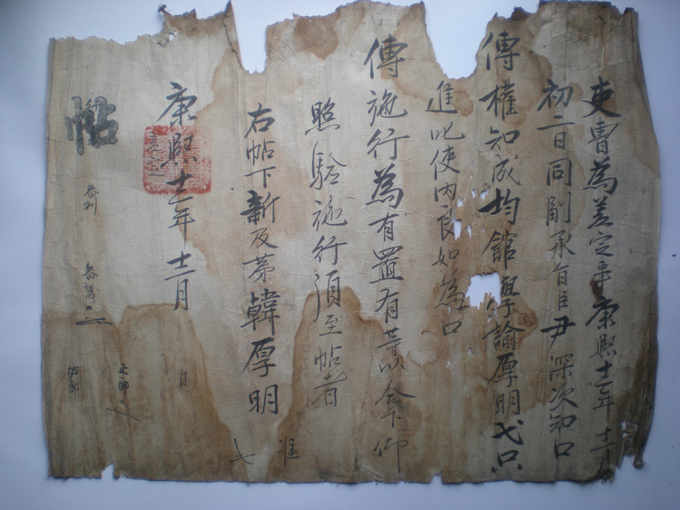 吏曺爲差定事康熙十一年十二月
初二日同副承旨臣尹深次知口
傳權知成均館學諭厚明弋只
進叱使內良如爲口
傳施行爲有置有等以合下仰
照驗施行須至帖者
右帖下新及第韓厚明 准
康熙十一年十二月 日
帖
叅判 叅議 正郞 佐郞